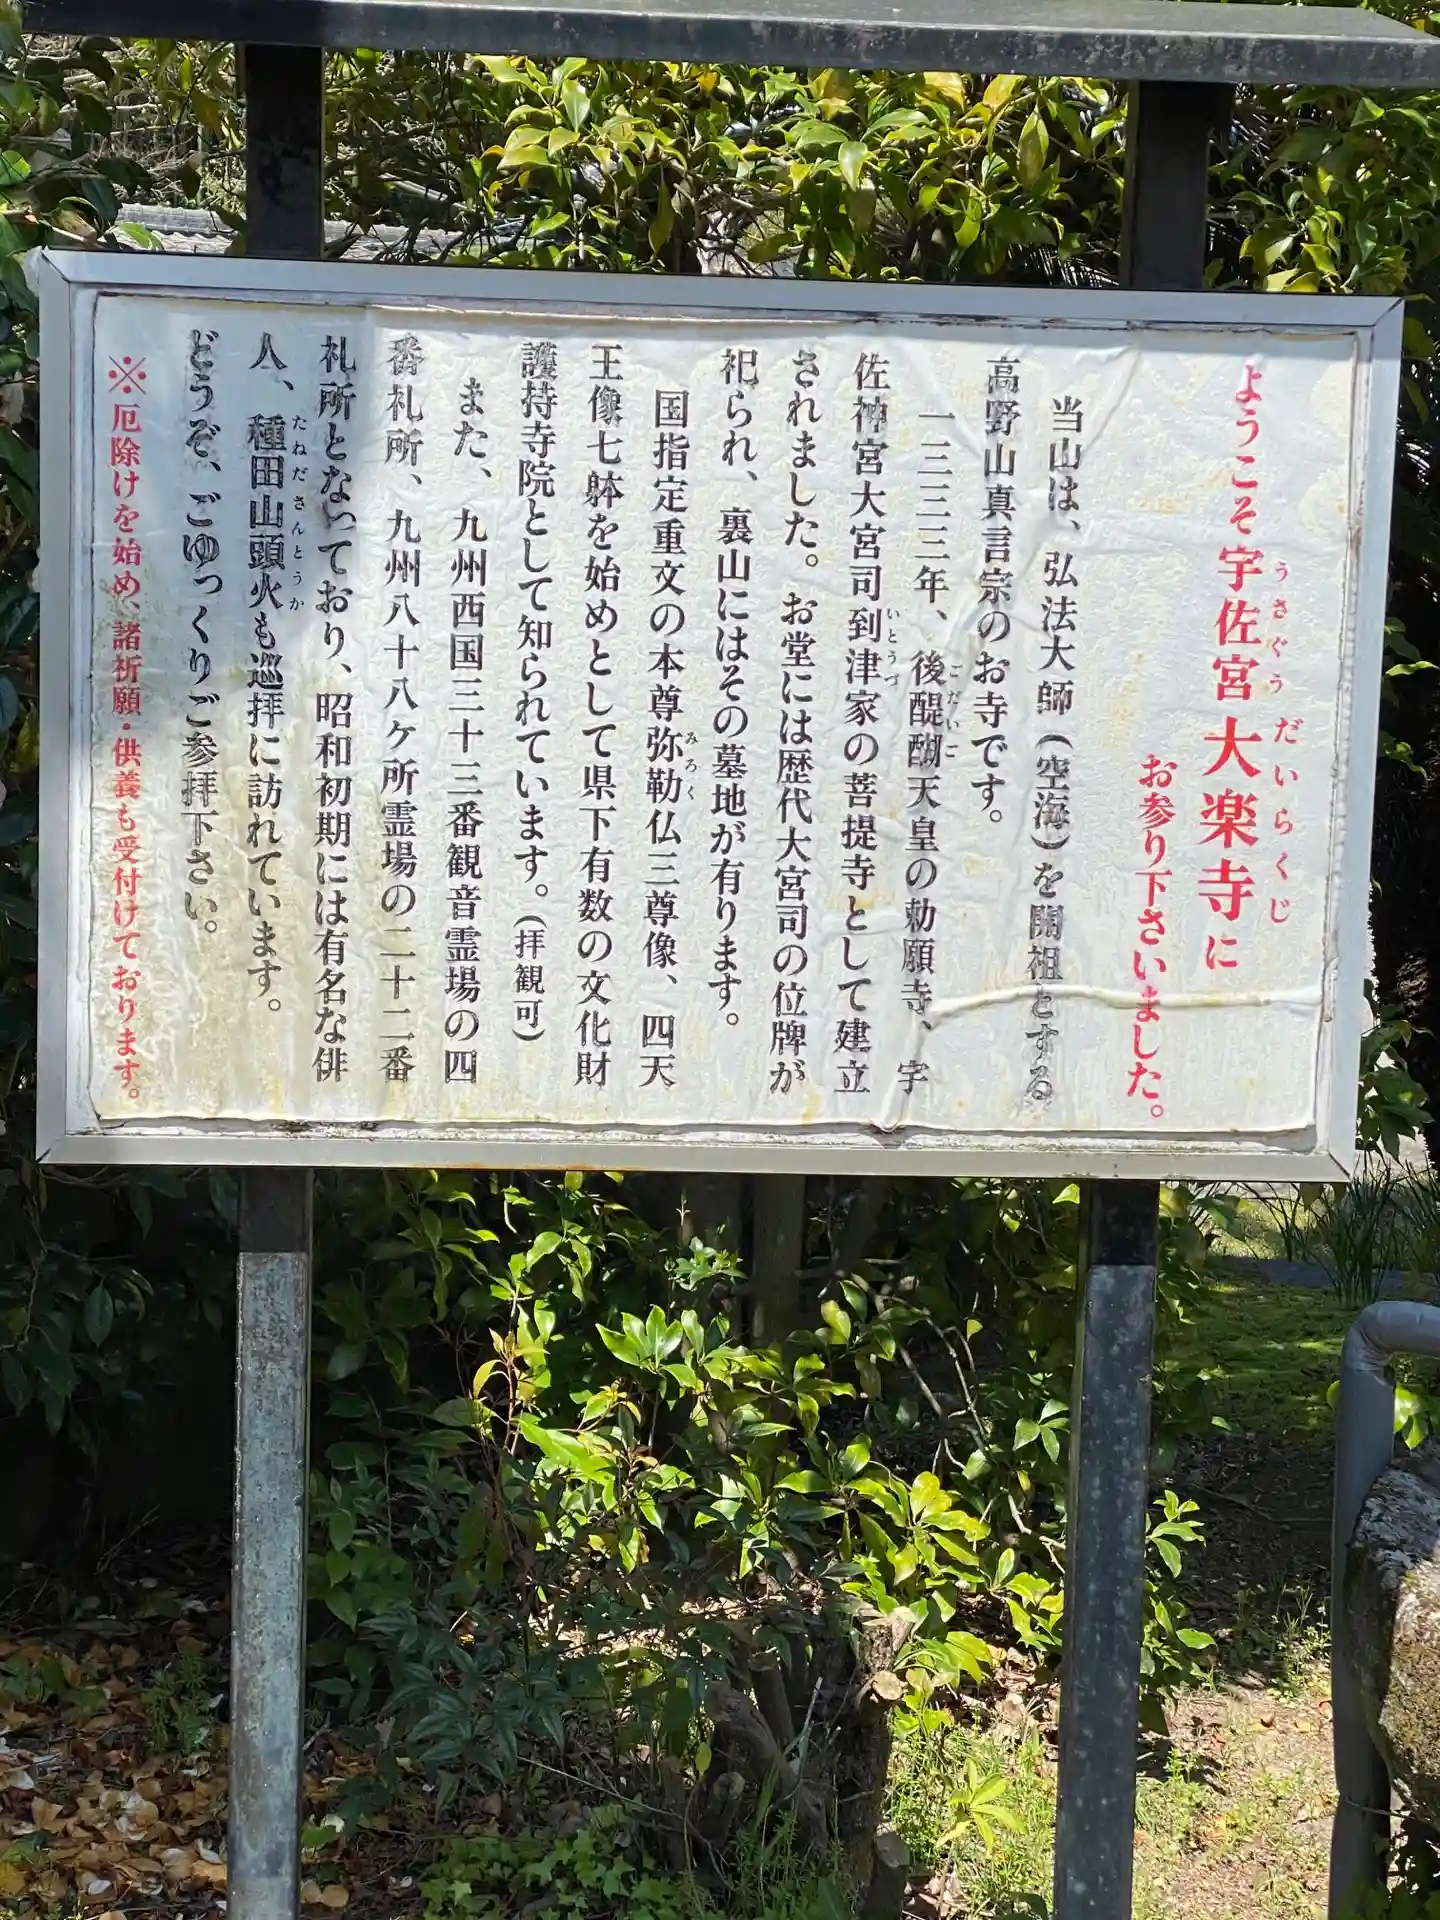 ようこそ宇佐宮大楽寺に
うさぐうだいらくじ
お参り下さいました。
当山は、弘法大師(空海)を開祖とする
高野山真言宗のお寺です。
一三三三年、後醍醐天皇の勅願寺、宇
ごだいご
佐神宮大宮司到津家の菩提寺として建立
いとうづ
されました。お堂には歴代大宮司の位牌が
祀られ、裏山にはその墓地が有ります。
国指定重文の本尊弥勒仏三尊像、四天
みろく
王像七躰を始めとして県下有数の文化財
護持寺院として知られています。(拝観可)
また、九州西国三十三番観音霊場の四
番札所、九州八十八ヶ所霊場の二十二番
札所となっており、昭和初期には有名な俳
人、種田山頭火も巡拝に訪れています。
たねださんとうか
どうぞ、ごゆっくりご参拝下さい。
※厄除けを始め、諸祈願・供養も受付けております。